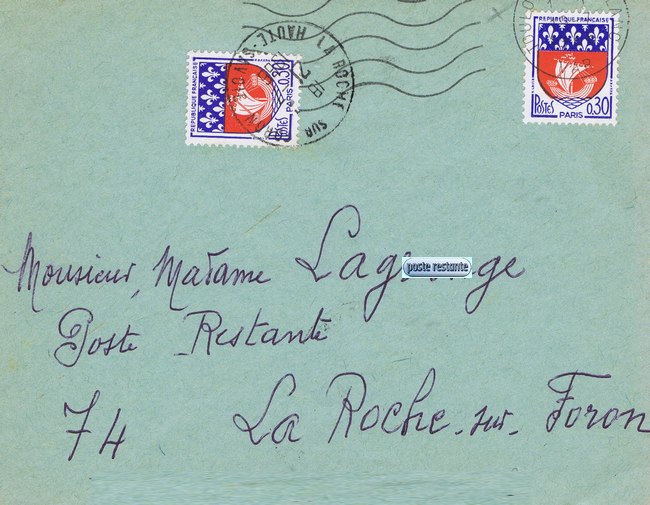 REPUBLIQUE FRANÇAISE
POSTES
0.30
PARIS
REPUBLIQUE FRANÇAISE
POSTES
0.30
PARIS
LA ROCHE SUR
HAUTE-SAVOIE
Monsieur, Madame
poste restante
Poste Restante
74 La Roche-sur-Foron